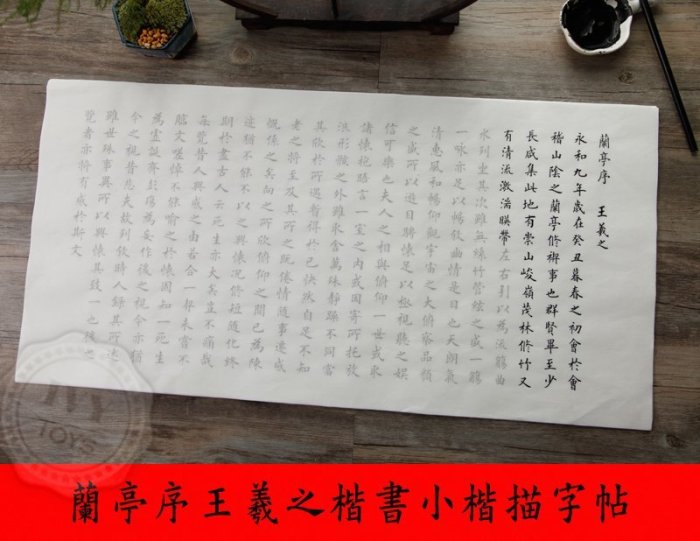 蘭亭序 王羲之
永和九年歲在癸丑暮春之初會於會
稽山陰之蘭亭脩禊事也群賢畢至少
長咸集此地有崇山峻嶺茂林脩竹又
有清流激湍暎帶左右引以為流觴曲
水列坐其次雖無絲竹管絃之盛一觴
一詠亦足以暢敘幽情是日也天朗氣
清惠風和暢仰觀宇宙之大俯察品類
之盛所以遊目騁懷足以極視聽之娛
信可樂也夫人之相與俯仰一世或取
諸懷抱晤言一室之內或因寄所托放
浪形骸之外雖取舍萬殊靜躁不同當
其欣於所遇暫得於己快然自足不知
老之將至及其所之既倦情隨事遷感
慨係之矣向之所欣俯仰之間已為陳
迹猶不能不以之興懷況脩短隨化終
期於盡古人云死生亦大矣豈不痛哉
每覽昔人興感之由若合一契未嘗不
臨文嗟悼不能喻之於懷固知一死生
為虛誕齊彭殤為妄作後之視今亦猶
今之視昔悲夫故列敘時人錄其所述
雖世殊事異所以興懷其致一也後之
覽者亦將有感於斯文
TOYS
蘭亭序王羲之楷書小楷描字帖